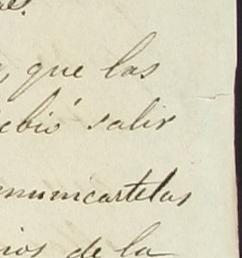 que las
ebió salir
municartelas
de la